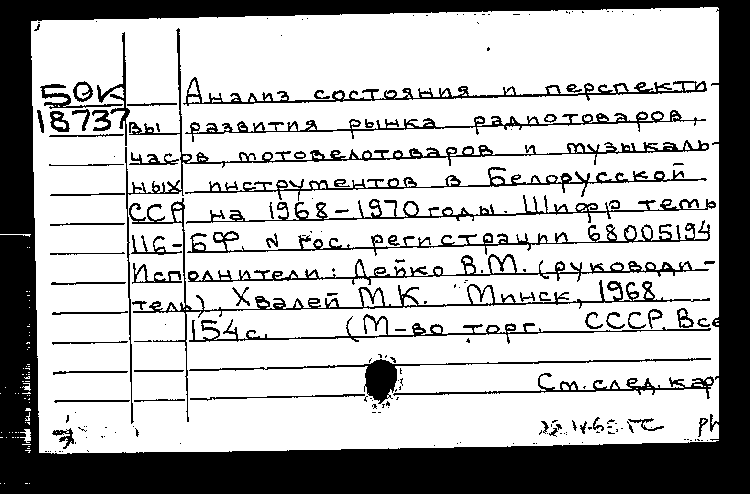 50К
18737
Анализ состояния и перспекти-
вы развития рынка радиотоваров,
часов, мотовелотоваров и музыкаль-
ных инструментов в Белорусской
ССР на 1968-1970 годы. Шифр темы
116-БФ. N Гос. регистрации 68005194
Исполнители: Дейко В.М. (руководи-
тель), Хвалей М.К. Минск, 1968.
154 с. (М-во торг. СССР. Все
См. след. кар